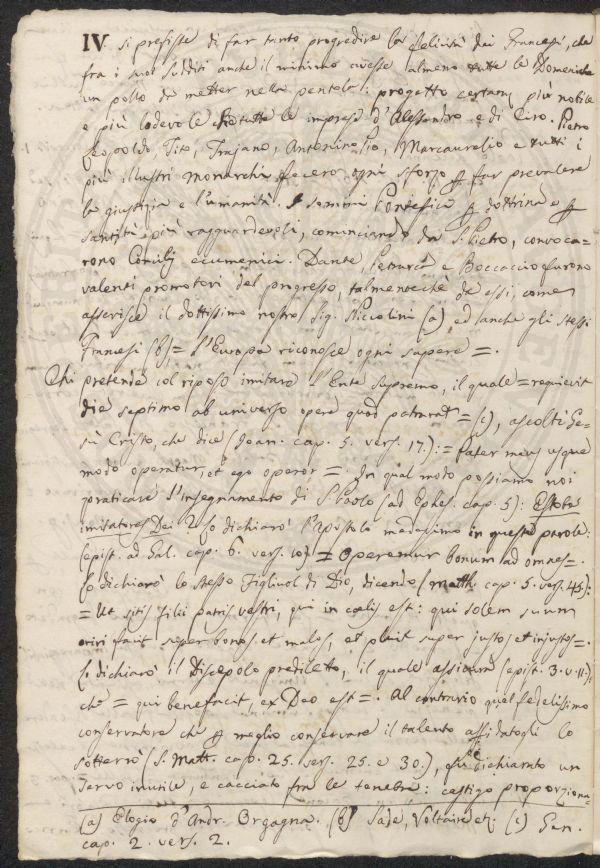 IV. si prefisse di far tanto progredire la felicità dei Francesi, che
fra i suoi sudditi anche il minimo avesse almeno tutte le Domeniche
un pollo da metter nella pentola: progetto certam. più nobile
e più lodevole di tutte le imprese d'Alessandro e di Ciro. Pietro
Leopoldo, Tito, Trajano, Antonino Pio, Marcaurelio e tutti i
più illustri monarchi fecero ogni sforzo p far prevalere
la giustizia e l'umanità. I sommi Pontefici p dottrina e p
santità i più ragguardevoli, cominciando da S. Pietro, convoca-
rono Concilj ecumenici. Dante, Petrarca e Boccaccio furono
valenti promotori del progresso, talmenteché da essi, come
asserisce il dottissimo nostro Sig. Niccolini (a), ed anche gli stessi
Francesi (b) = l'Europa riconosce ogni sapere =.
Chi pretende col riposo imitare l'Ente supremo, il quale = requievit
die septimo ab universo opere quod patrarat = (c), ascolti Ge-
sù Cristo, che dice (Joan. cap. 5. vers. 17.): = Pater meus usque
modo operatur, et ego operor =. In qual modo possiamo noi
praticare l'insegnamento di S. Paolo (ad Ephes. cap. 5): Estote
imitatores Dei? Lo dichiarò l'Apostolo medesimo in queste parole:
(epist. ad Gal. cap. 6. vers. 10) = Operemur bonum ad omnes =.
Lo dichiarò lo stesso Figliuol di Dio, dicendo (Matth. cap. 5. vers. 45):
= Ut sitis filii patris vestri, qui in coelis est: qui solem suum
oriri facit super bonos et malos, et pluit super justos et injustos =.
Lo dichiarò il Discepolo prediletto, il quale assicura (epist. 3. v. 11.),
che = qui benefacit, ex Deo est =. Al contrario quel fedelissimo
conservatore che p meglio conservare il talento affidatogli lo
sotterrò (S. Matt. cap. 25. vers. 25. e 30.), fu dichiarato un
servo inutile, e cacciato fra le tenebre: castigo proporziona-
(a) Elogio d'Andr. Orgagna. (b) Sade, Voltaire etc. (c) Gen.
cap. 2. vers. 2.